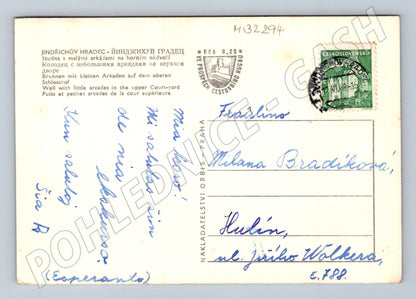 M-32294
JINDŘICHŮV HRADEC - ЙИНДРЖИХУВ ГРАДЕЦ
Studna s malými arkádami na horním nádvoří
Колодец с небольшими аркадами на верхнем
дворе
Brunnen mit kleinen Arkaden auf dem oberen
Schlosshof
Well with little arcades in the upper Courtyard
Puits et petites arcades de la cour supérieure
Kčs 0,20
VE PROSPĚCH CESTOVNÍHO RUCHU
ČESKOSLOVENSKO
NAKLADATELSTVÍ ORBIS - PRAHA
Mia karó!
Mi salutas vin
de mia
ekskurso.
Kun salutoj
(Esperanto)
Fraŭlino
Milana Bradíková,
Hulín,
ul. Jiřího Wolkera,
č. 788.
POHLEDNICE - GASH